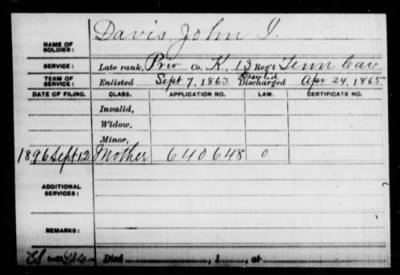 NAME OF SOLDIER: Davis, John I.
SERVICE: Late rank, Priv Co. K, 13 Reg't Tenn Cav
TERM OF SERVICE: Enlisted Sept 7, 1863 Discharged Apr 24, 1865
DATE OF FILING. CLASS. APPLICATION NO. LAW. CERTIFICATE NO.
Invalid,
Widow,
Minor,
1896 Sept 12 Mother 640648 0
ADDITIONAL SERVICES:
REMARKS:
Died , 1 , at